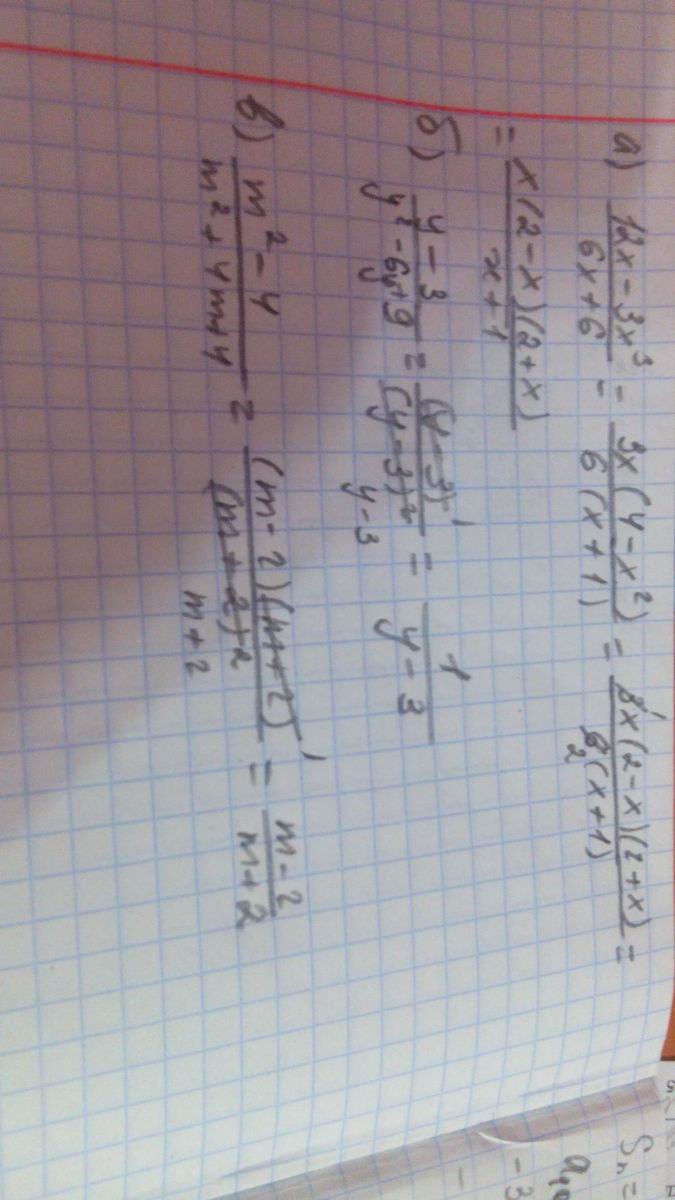 а) (12x - 3x³)/(6x + 6) - 3x(4 - x²)/6(x + 1) = 3x(2 - x)(2 + x)/6(x + 1) = 1 2
= x(2 - x)(2 + x)/x + 1
б) (y - 3)/(y² - 6y + 9) = (y - 3)/(y - 3)² = 1/(y - 3) 1 y - 3
в) (m² - 4)/(m² + 4m + 4) = (m - 2)(m + 2)/(m + 2)² = (m - 2)/(m + 2) 1 m + 2
Sₙ =
-3